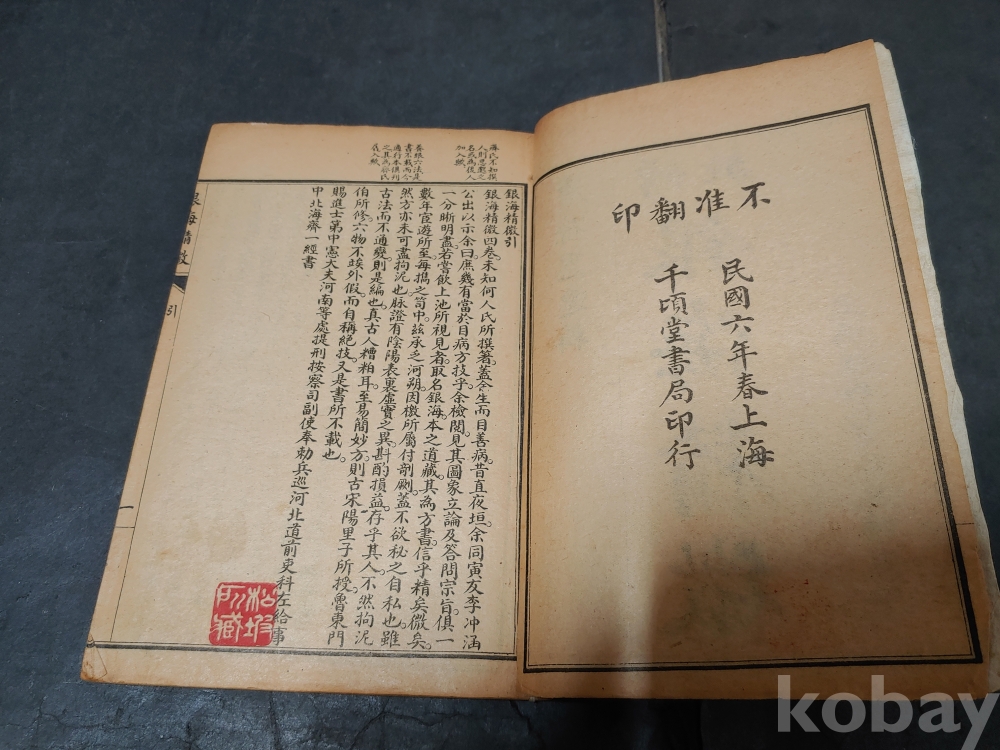 不准翻印
民國六年春上海
千頃堂書局印行
名或為後人
加入歟
書不載而今
通行本俱刊
銀海精微引
銀海精微四卷未知何人氏所撰著蓋余生而目善病昔直夜垣余同寅友李冲涵
公出以示余曰庶幾有當於目病方技乎余檢閱見其圖象立論及答問宗旨俱一
一分晰明盡若嘗飲上池所視見者取名銀海本之道藏其為方書信乎精矣微矣
數年宦遊所至每搗之笥中茲承乏河朔因檄所屬付剞劂蓋不欲秘之自私也雖
然方亦未可盡拘泥也脉證有陰陽表裏虛實之異斟酌損益存乎其人不然拘泥
古法而不通變則是編也真古人糟粕耳至易簡妙方則古宋陽里子所授魯東門
伯所修六物不竢外假而自稱絕技又是書所不載也
賜進士第中憲大夫河南等處提刑按察司副使奉勅兵巡河北道前吏科左給事
中北海齊一經書
銀海精微
引
一
所藏
kobay